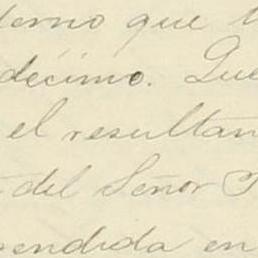 terno que
décimo. Que
el resultan
del Señor
endida en